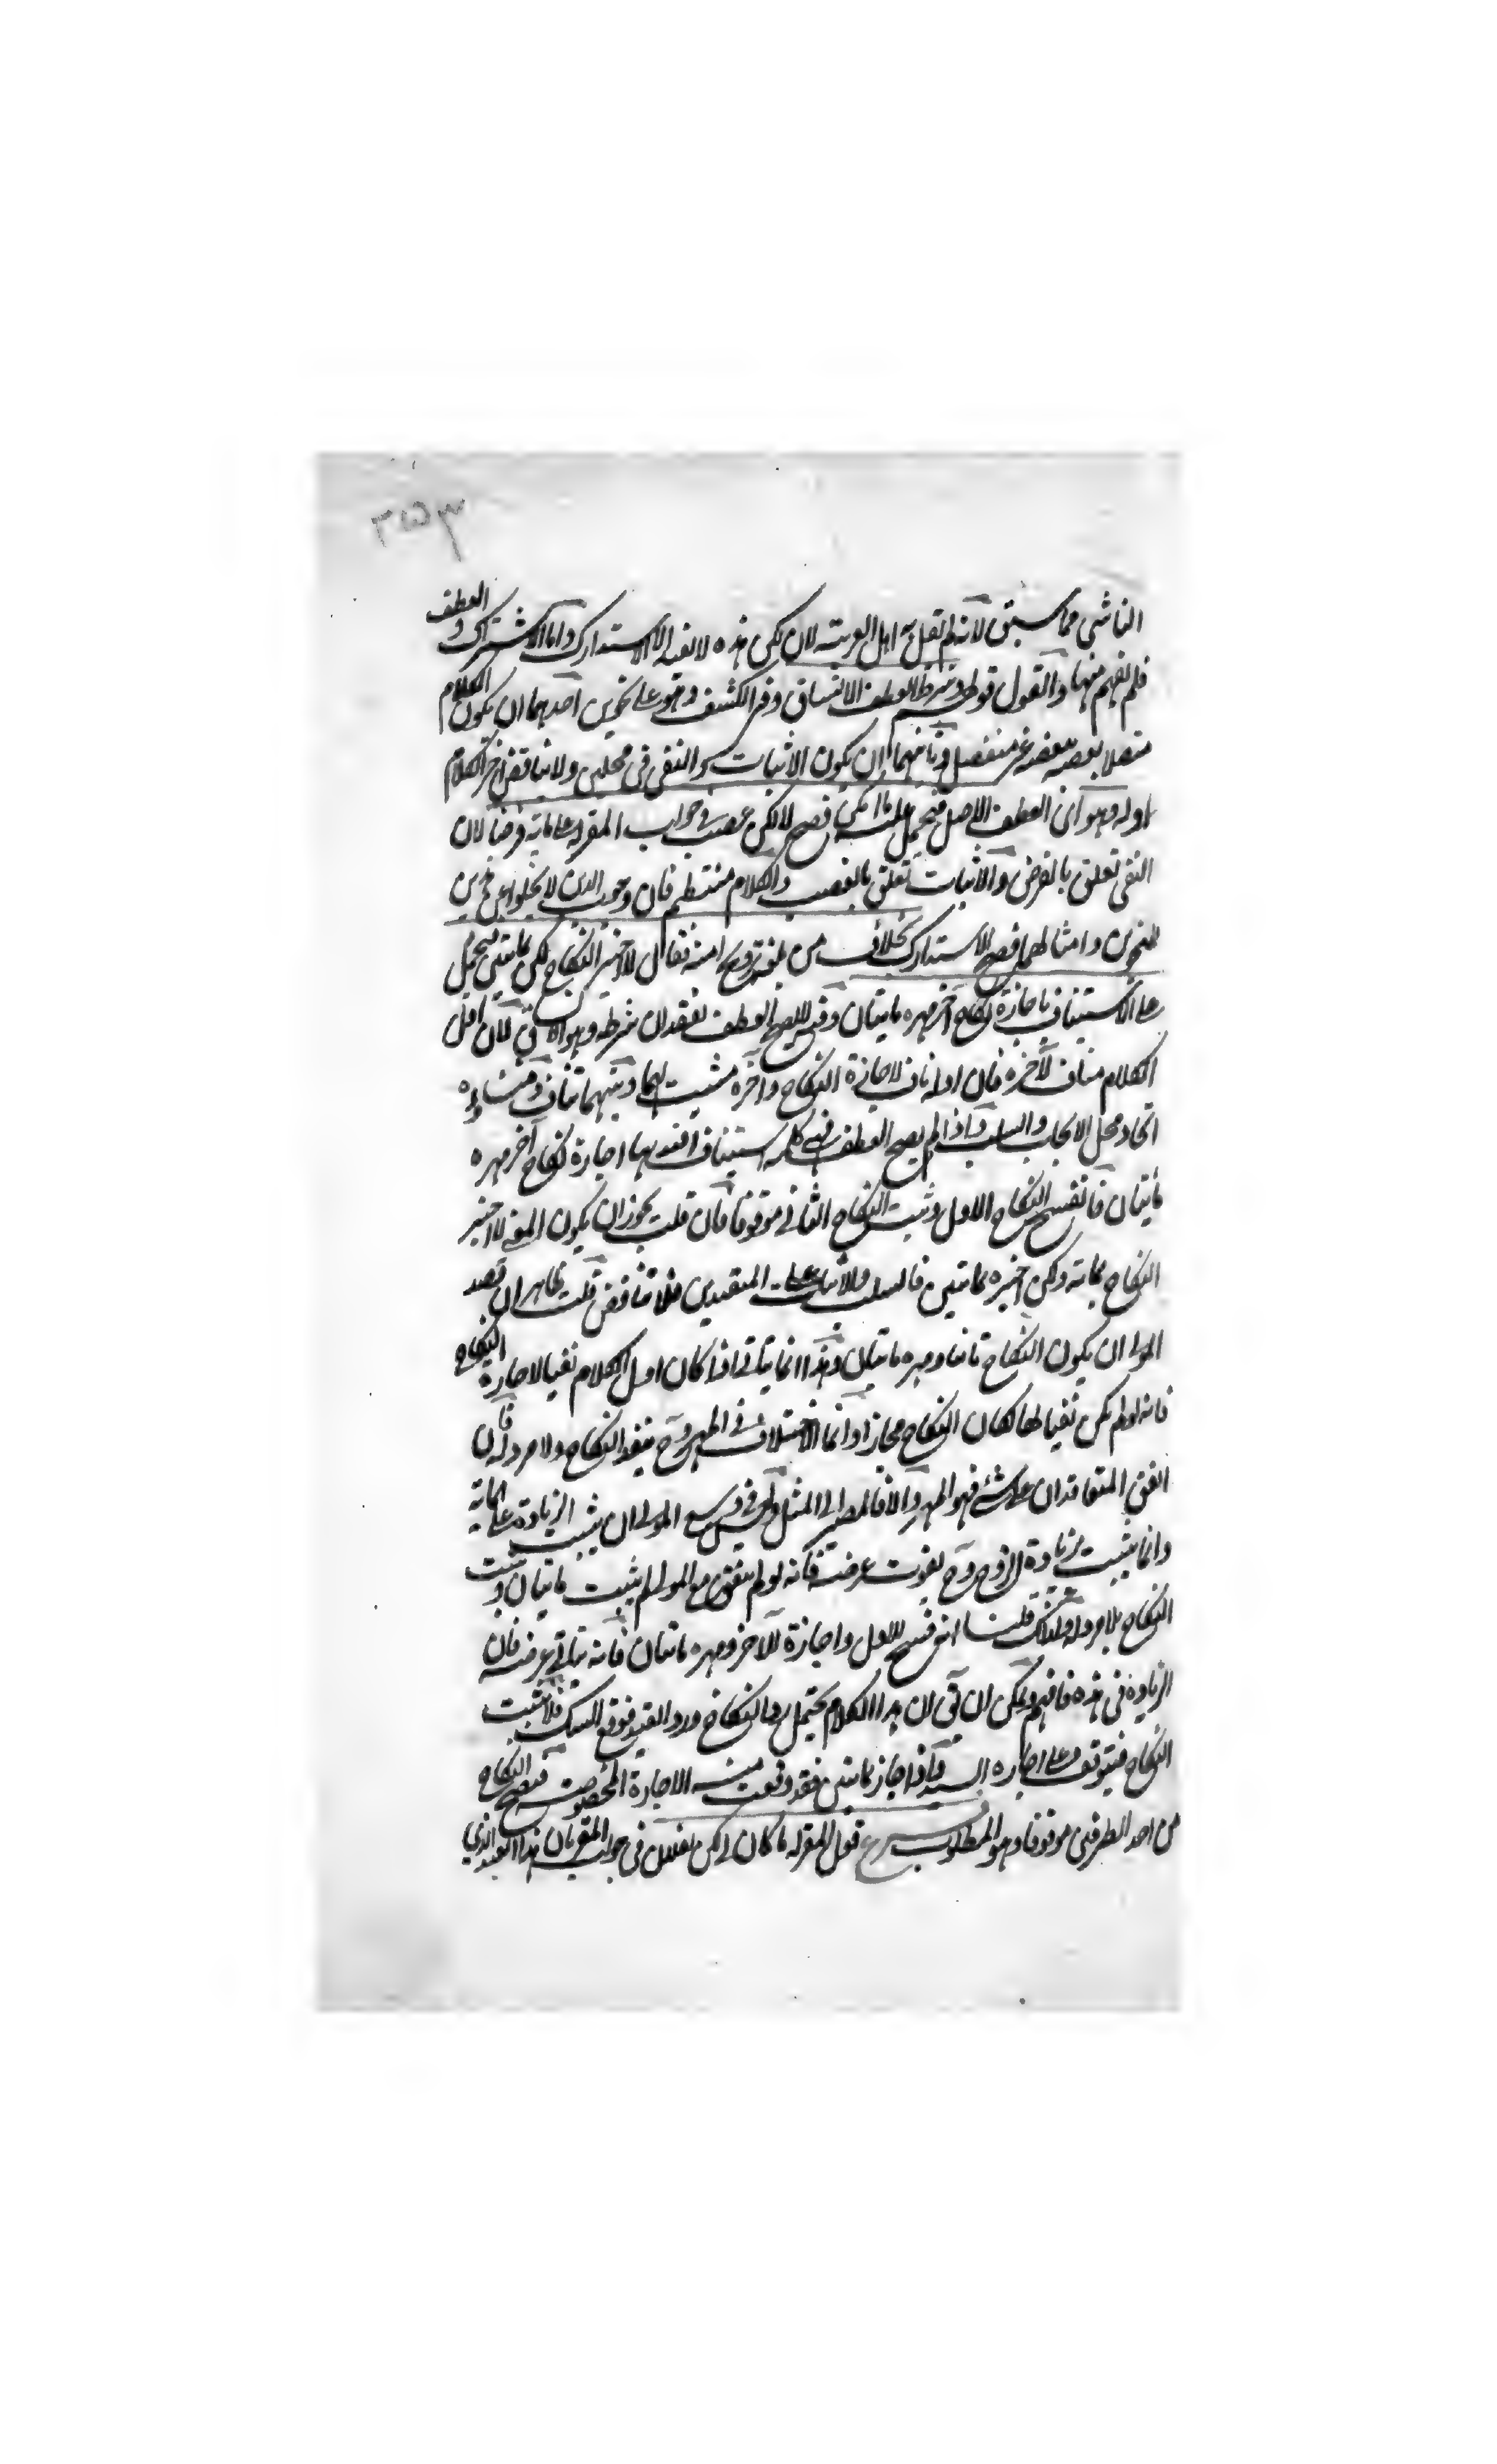 ٣٥٣
الناشي مما سبق لانه لم يقل به اهل العربية لان لكن هذه لا تفيد الا الاستدراك واما الاشتراك و العطف
فلم يفهم منها والقول قولهم وشرط العطف الاتساق وفي الكشف وهو على نحوين احدهما ان يكون الكلام
متصلا بعضه ببعضه غير منفصل وثانيهما ان يكون الاثبات والنفي في محلين ولا يناقض اخر الكلام
اوله وهو اى العطف الاصل فيحمل عليه ما امكن فصح لا لكن غصب في جواب المقر له على مائة قرضا لان
النفي تعلق بالقرض والاثبات تعلق بالغصب والكلام منتظم فان وجوب الدين لا يخلوا عن
وامثالهما فصح الاستدراك بخلاف من بلغه تزويج امته فقال لا اجيز النكاح لكن بمائتين يحمل
على الاستيناف باجازة نكاح آخر مهره مائتان وفيه لا يصح العطف لفقدان شرطه وهو لان اول
الكلام مناف لآخره فان اوله ناف لاجازة النكاح وآخره مثبت لهما وبينهما تناف
اتحاد محل الايجاب والسلب واذا لم يصح العطف فهي كلمة استيناف افتد بها اجازة نكاح آخر مهره
مائتان فانفسخ النكاح الاول وثبت النكاح الثاني موقوفا فان قلت يجوز ان يكون المعنى لا اجيز
النكاح بمائة ولكن اجيزه بمائتين فالسلب والاثبات على المقيدين فلا تناقض قلت ظاهر ان قصد
المولى ان يكون النكاح ثابتا ومهره مائتان وهذا انما يتاتى اذا كان اول الكلام نفيا لاجازة النكاح
فانه لو لم يكن نفيا لها لكان النكاح مجازا وانما الاختلاف في المهر وح ينفذ النكاح ولا مرد له فان
اتفق المتعاقدان على شئ فهو المهر والا فالمصير الى المثل وليس في وسع المولى ان يثبت الزيادة على المائة
وانما يثبت بزيادة الزوج وح يفوت غرضه فانه لو لم يتفق مع المولى لم يثبت مائتان و ثبت
النكاح بلا مرد له ولذلك قلت انه فسخ للاول واجازة للآخر ومهره مائتان فانه يتاتى غرضه فان
الزيادة في هذه فافهم ويمكن ان يق ان هذا الكلام يحتمل رد النكاح ورد القيد فوقع الشك فلا يثبت
النكاح فيتوقف على اجازة السيد واذا اجاز بمائتين فقد وقعت منه الاجازة المخصوصة فيصح النكاح
من احد الطرفين موقوفا وهو المطلوب فرع قول المقر له ما كان لي لكن لفلان في جواب المقر بان هذا العبد الذي